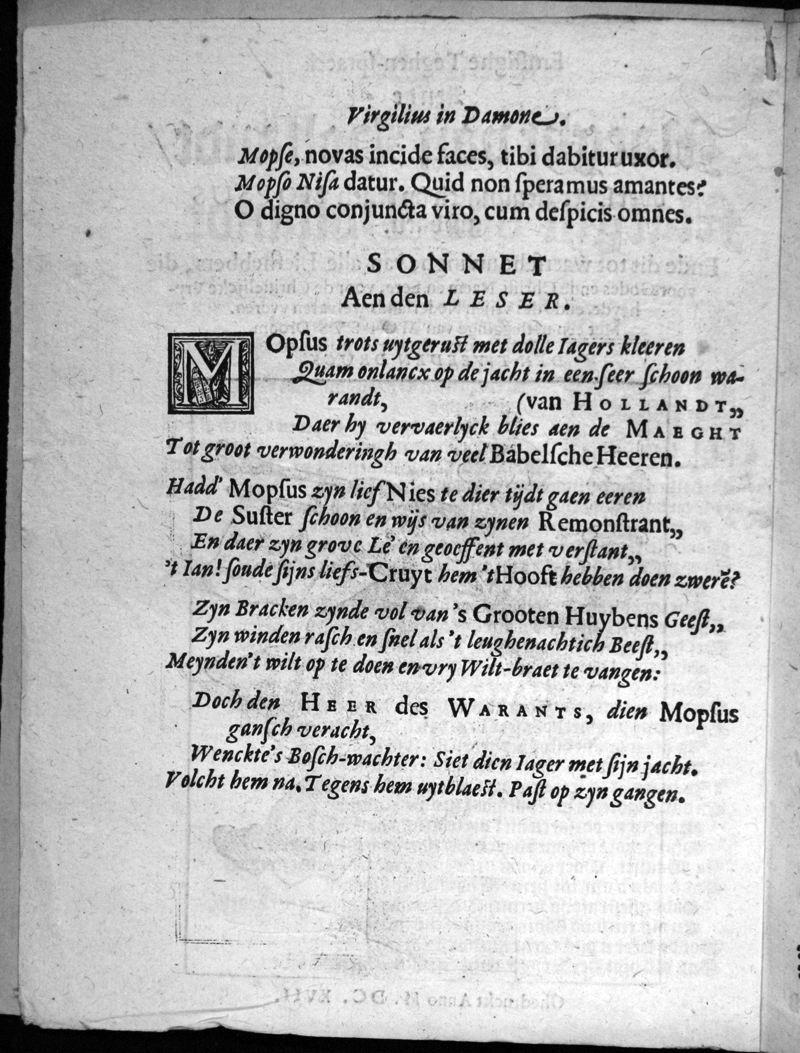 Virgilius in Damone.
Mopſe, novas incide faces, tibi dabitur uxor.
Mopſo Niſa datur. Quid non ſperamus amantes?
O digno conjuncta viro, cum deſpicis omnes.
SONNET
Aen den LESER.
MOpſus trots uytgeruſt met dolle Iagers kleeren
Quam onlancx op de jacht in een ſeer ſchoon wa-
randt, (van HOLLANDT,,
Daer hy vervaerlyck blies aen de MAEGHT
Tot groot verwonderingh van veel Babelſche Heeren.
Hadd' Mopſus zyn lief Nies te dier tijdt gaen eeren
De Suſter ſchoon en wijs van zynen Remonſtrant,,
En daer zyn grove Le' en geoeffent met verſtant,,
't Ian! ſoude ſijns liefs-Cruyt hem 't Hooft hebben doen zwerē?
Zyn Bracken zynde vol van 's Grooten Huybens Geeſt,,
Zyn winden raſch en ſnel als 't leughenachtich Beeſt,,
Meynden't wilt op te doen en vry Wilt-braet te vangen:
Doch den HEER des WARANTS, dien Mopſus
ganſch veracht,
Wenckte's Boſch-wachter: Siet dien Iager met ſijn jacht.
Volcht hem na. Tegens hem uytblaeſt. Paſt op zyn gangen.